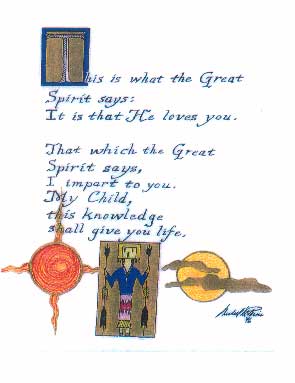 This is what the Great
Spirit says:
It is that He loves you.
That which the Great
Spirit says,
I impart to you.
My Child,
this knowledge
shall give you life.